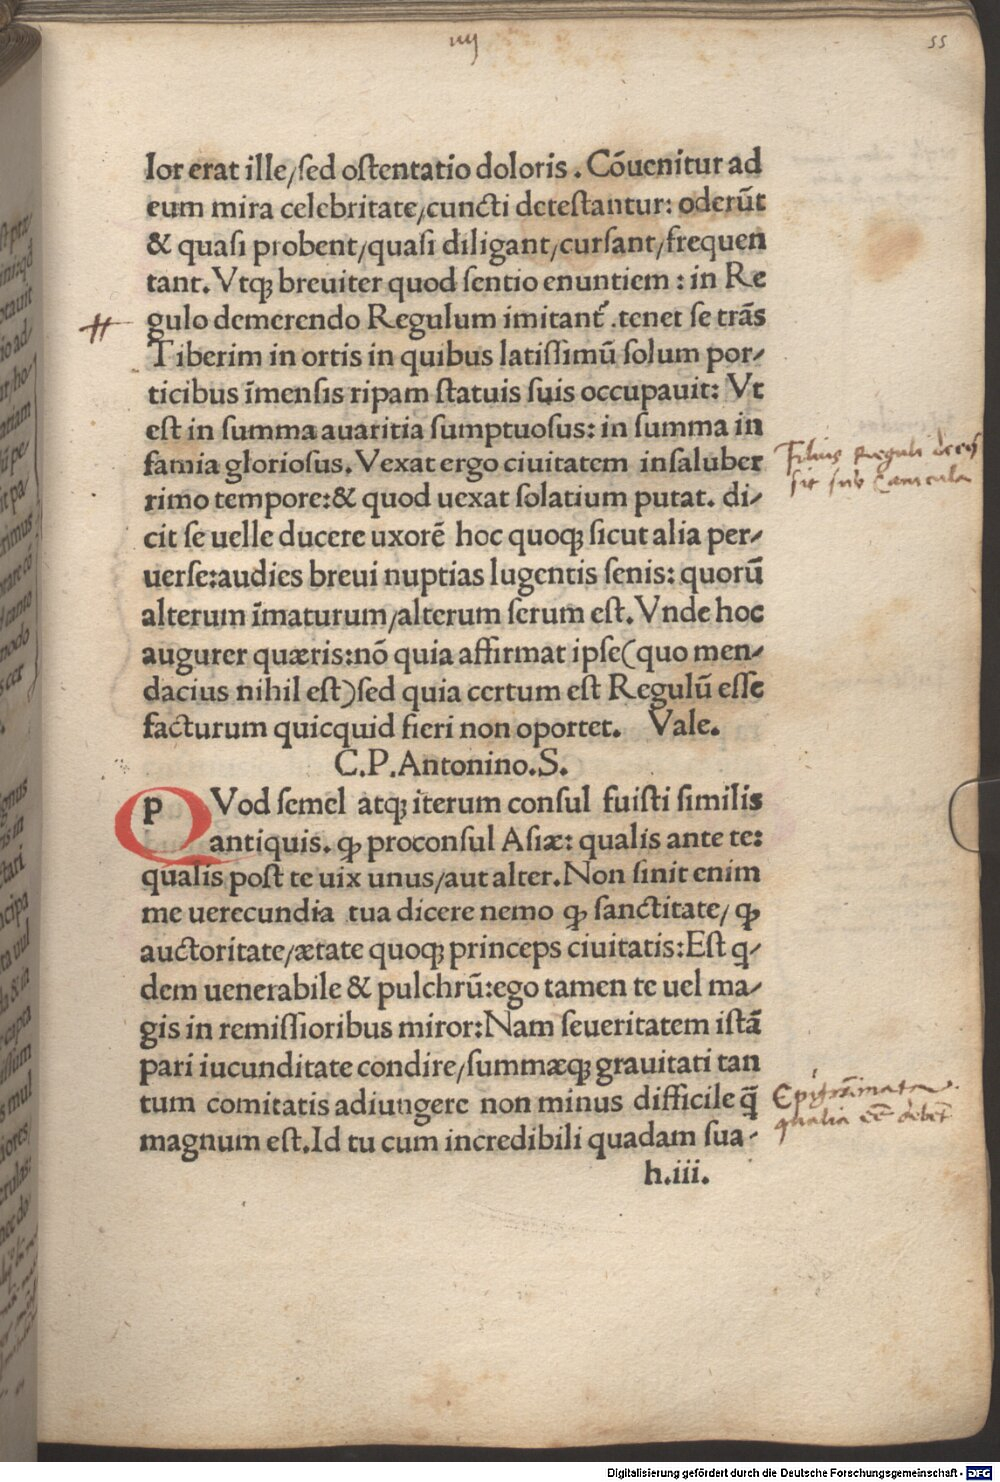 iiij
55
lor erat ille/sed ostentatio doloris. Cōuenitur ad
eum mira celebritate/cuncti detestantur: oderūt
& quasi probent/quasi diligant/cursant/frequen
tant. Vtqꝫ breuiter quod sentio enuntiem: in Re
gulo demerendo Regulum imitant᷑. tenet se trās
Tiberim in ortis in quibus latissimū solum por/
ticibus īmensis ripam statuis suis occupauit: Vt
est in summa auaritia sumptuosus: in summa in
famia gloriosus. Vexat ergo ciuitatem insaluber
rimo tempore:& quod uexat solatium putat. di/
cit se uelle ducere uxorē hoc quoqꝫ sicut alia per/
uerse:audies breui nuptias lugentis senis: quorū
alterum īmaturum/alterum serum est. Vnde hoc
augurer quæris:nō quia affirmat ipse(quo men/
dacius nihil est)sed quia certum est Regulū esse
facturum quicquid fieri non oportet. Vale.
C.P.Antonino.S.
QVod semel atqꝫ iterum consul fuisti similis
antiquis. ꝙ proconsul Asiæ: qualis ante te:
qualis post te uix unus/aut alter. Non sinit enim
me uerecundia tua dicere nemo ꝙ sanctitate/ ꝙ
auctoritate/ætate quoqꝫ princeps ciuitatis:Est q/
dem uenerabile & pulchrū:ego tamen te uel ma/
gis in remissioribus miror:Nam seueritatem istā
pari iucunditate condire/summæqꝫ grauitati tan
tum comitatis adiungere non minus difficile q̄
magnum est. Id tu cum incredibili quadam sua/
h.iii.
Filius Reguli deces
sit sub Canicula
Epigrāmata
qualia eē debēt